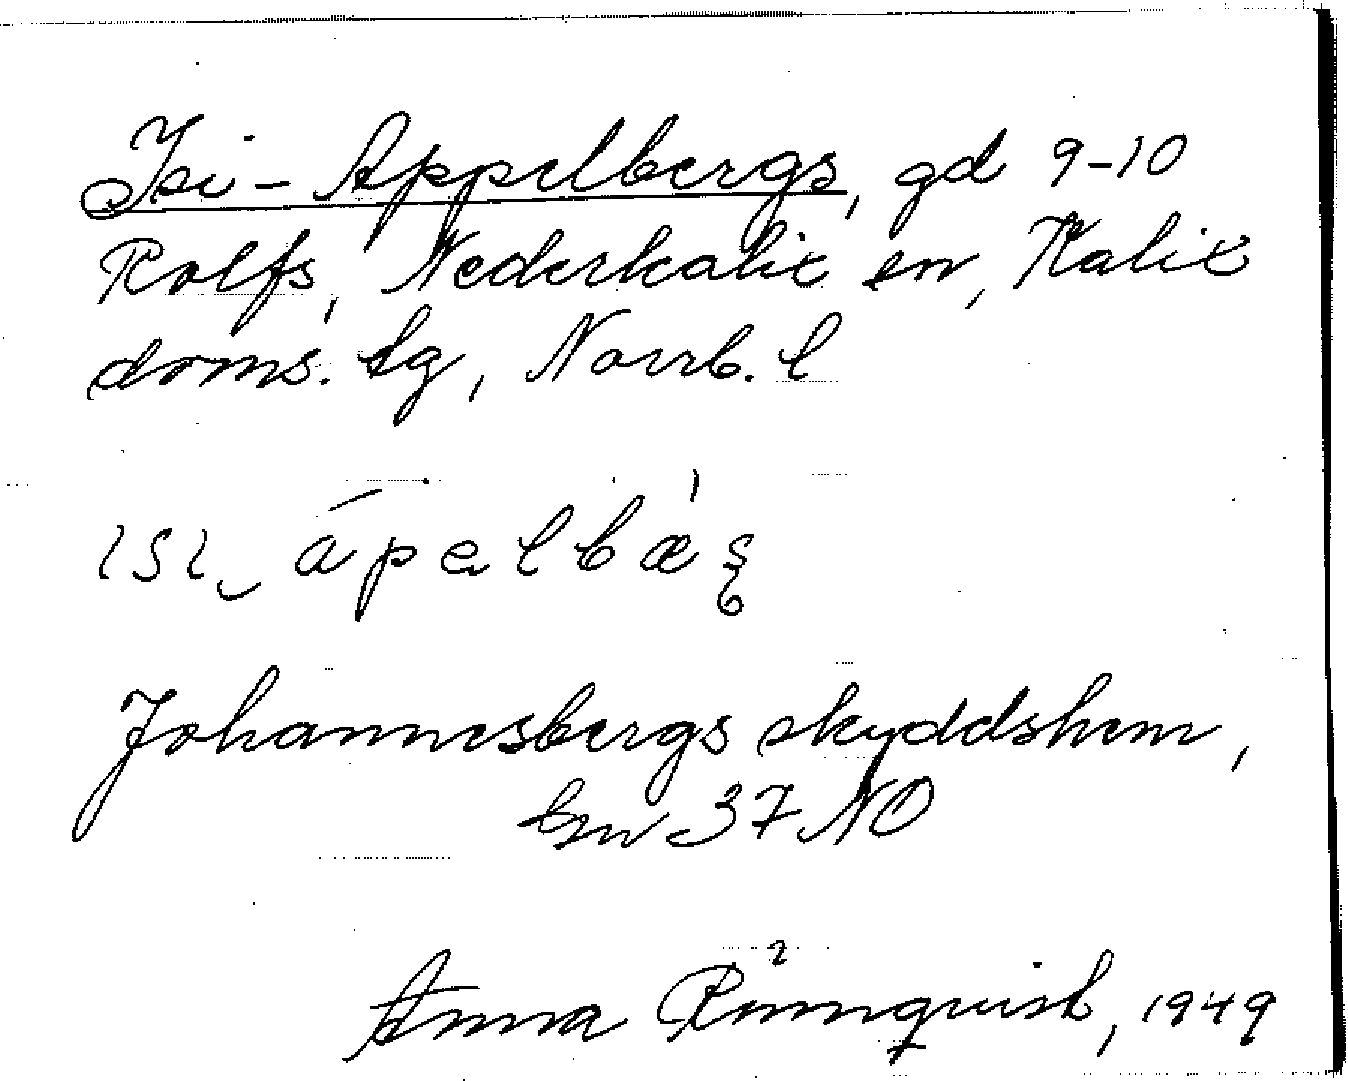 Isi-Appelbergs, gd 9-10
Rolfs, Nederkalix sn, Kalix
doms. tg, Norrb. l
ápelbæ̀
Johannesbergs skyddshem,
km 37 NO
Anna Rönnqvist, 1949